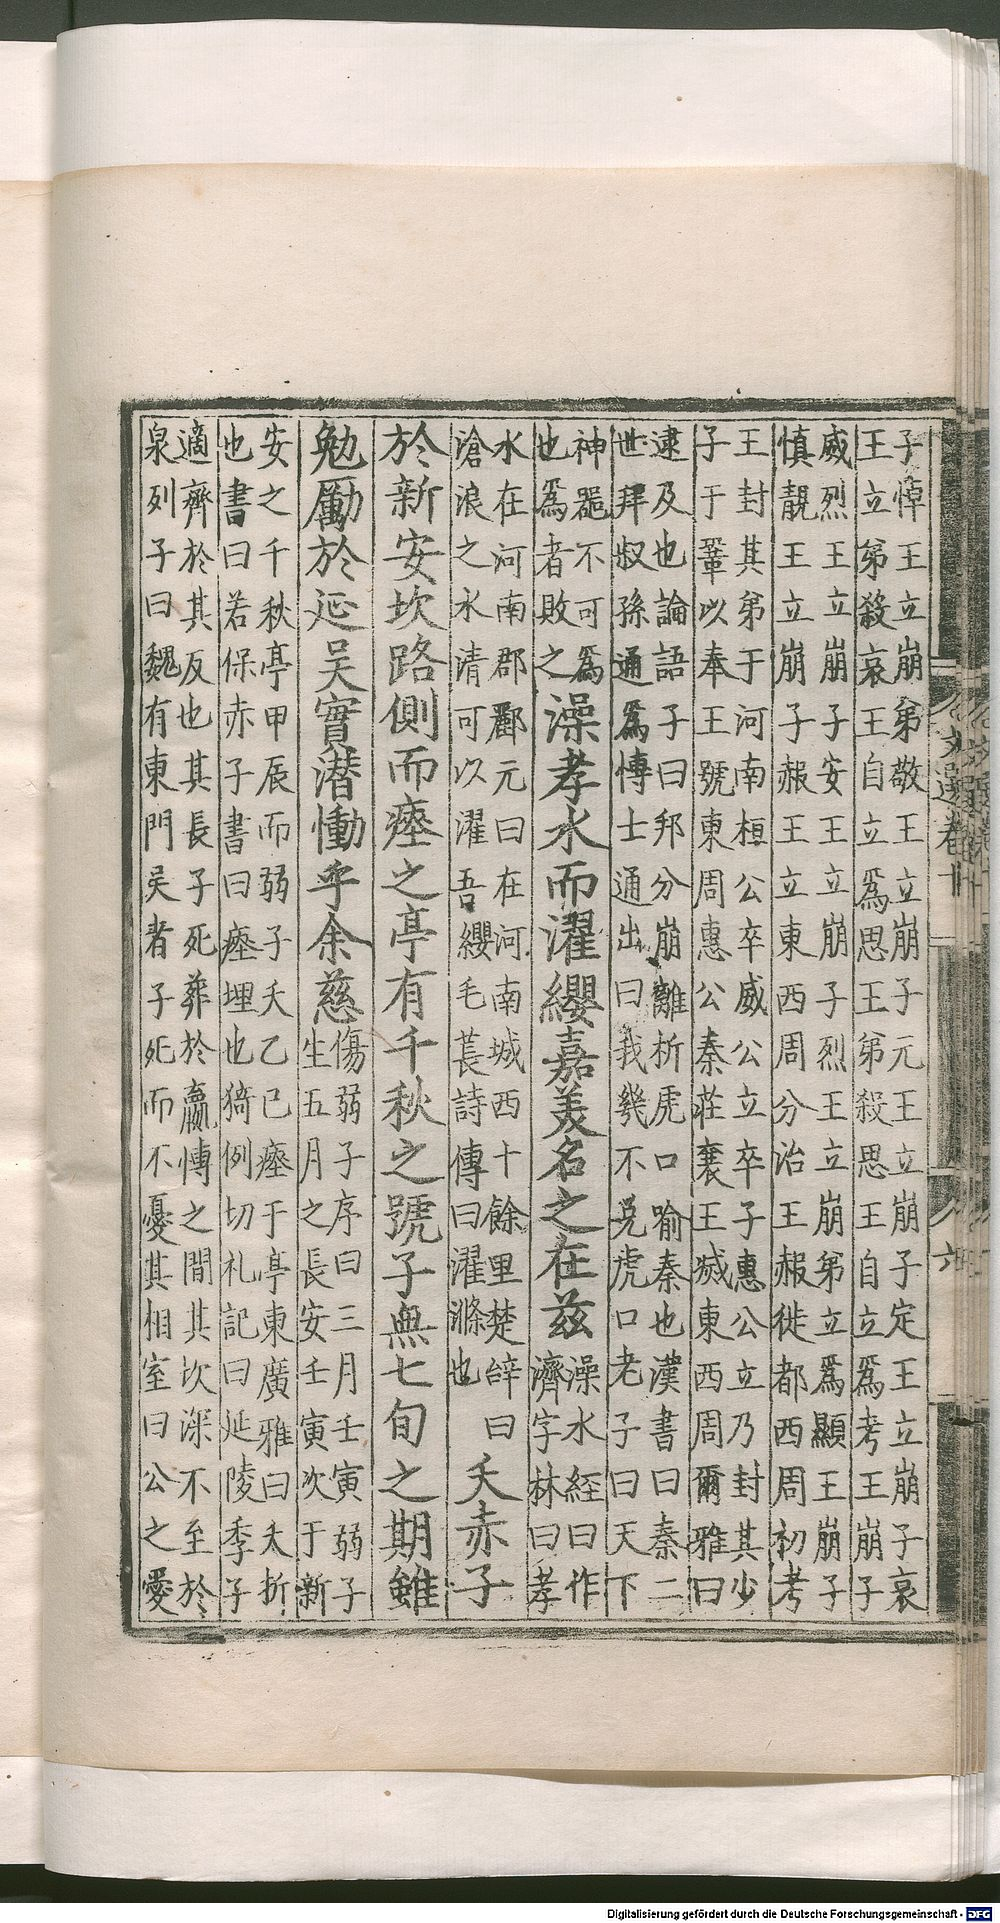 子悼王立崩弟敬王立崩子元王立崩子定王立崩子哀
王立弟殺哀王自立爲思王弟殺思王自立爲考王崩子
威烈王立崩子安王立崩子烈王立崩弟立爲顯王崩子
慎靚王立崩子赧王立東西周分治王赧徙都西周初考
王封其弟于河南桓公卒威公立卒子惠公立乃封其少
子于鞏以奉王號東周惠公秦莊襄王滅東西周爾雅曰
逮及也論語子曰邦分崩離析虎口喻秦也漢書曰秦二
世拜叔孫通爲博士通出曰我幾不免虎口老子曰天下
神器不可爲
也爲者敗之
澡孝水而濯纓嘉美名之在兹
澡水經曰作
濟字林曰孝
水在河南郡酈元曰在河南城西十餘里楚辝曰
滄浪之水清可以濯吾纓毛萇詩傳曰濯滌也
夭赤子
於新安坎路側而瘞之亭有千秋之號子無七旬之期雖
勉勵於延吴實潜慟乎余慈
傷弱子序曰三月壬寅弱子
生五月之長安壬寅次于新
安之千秋亭甲辰而弱子夭乙巳瘞于亭東廣雅曰夭折
也書曰若保赤子書曰瘞埋也猗例切礼記曰延陵季子
適齊於其反也其長子死葬於嬴博之間其坎深不至於
泉列子曰魏有東門吴者子死而不憂其相室曰公之愛
文選卷十
六
Digitalisierung gefördert durch die Deutsche Forschungsgemeinschaft - DFG